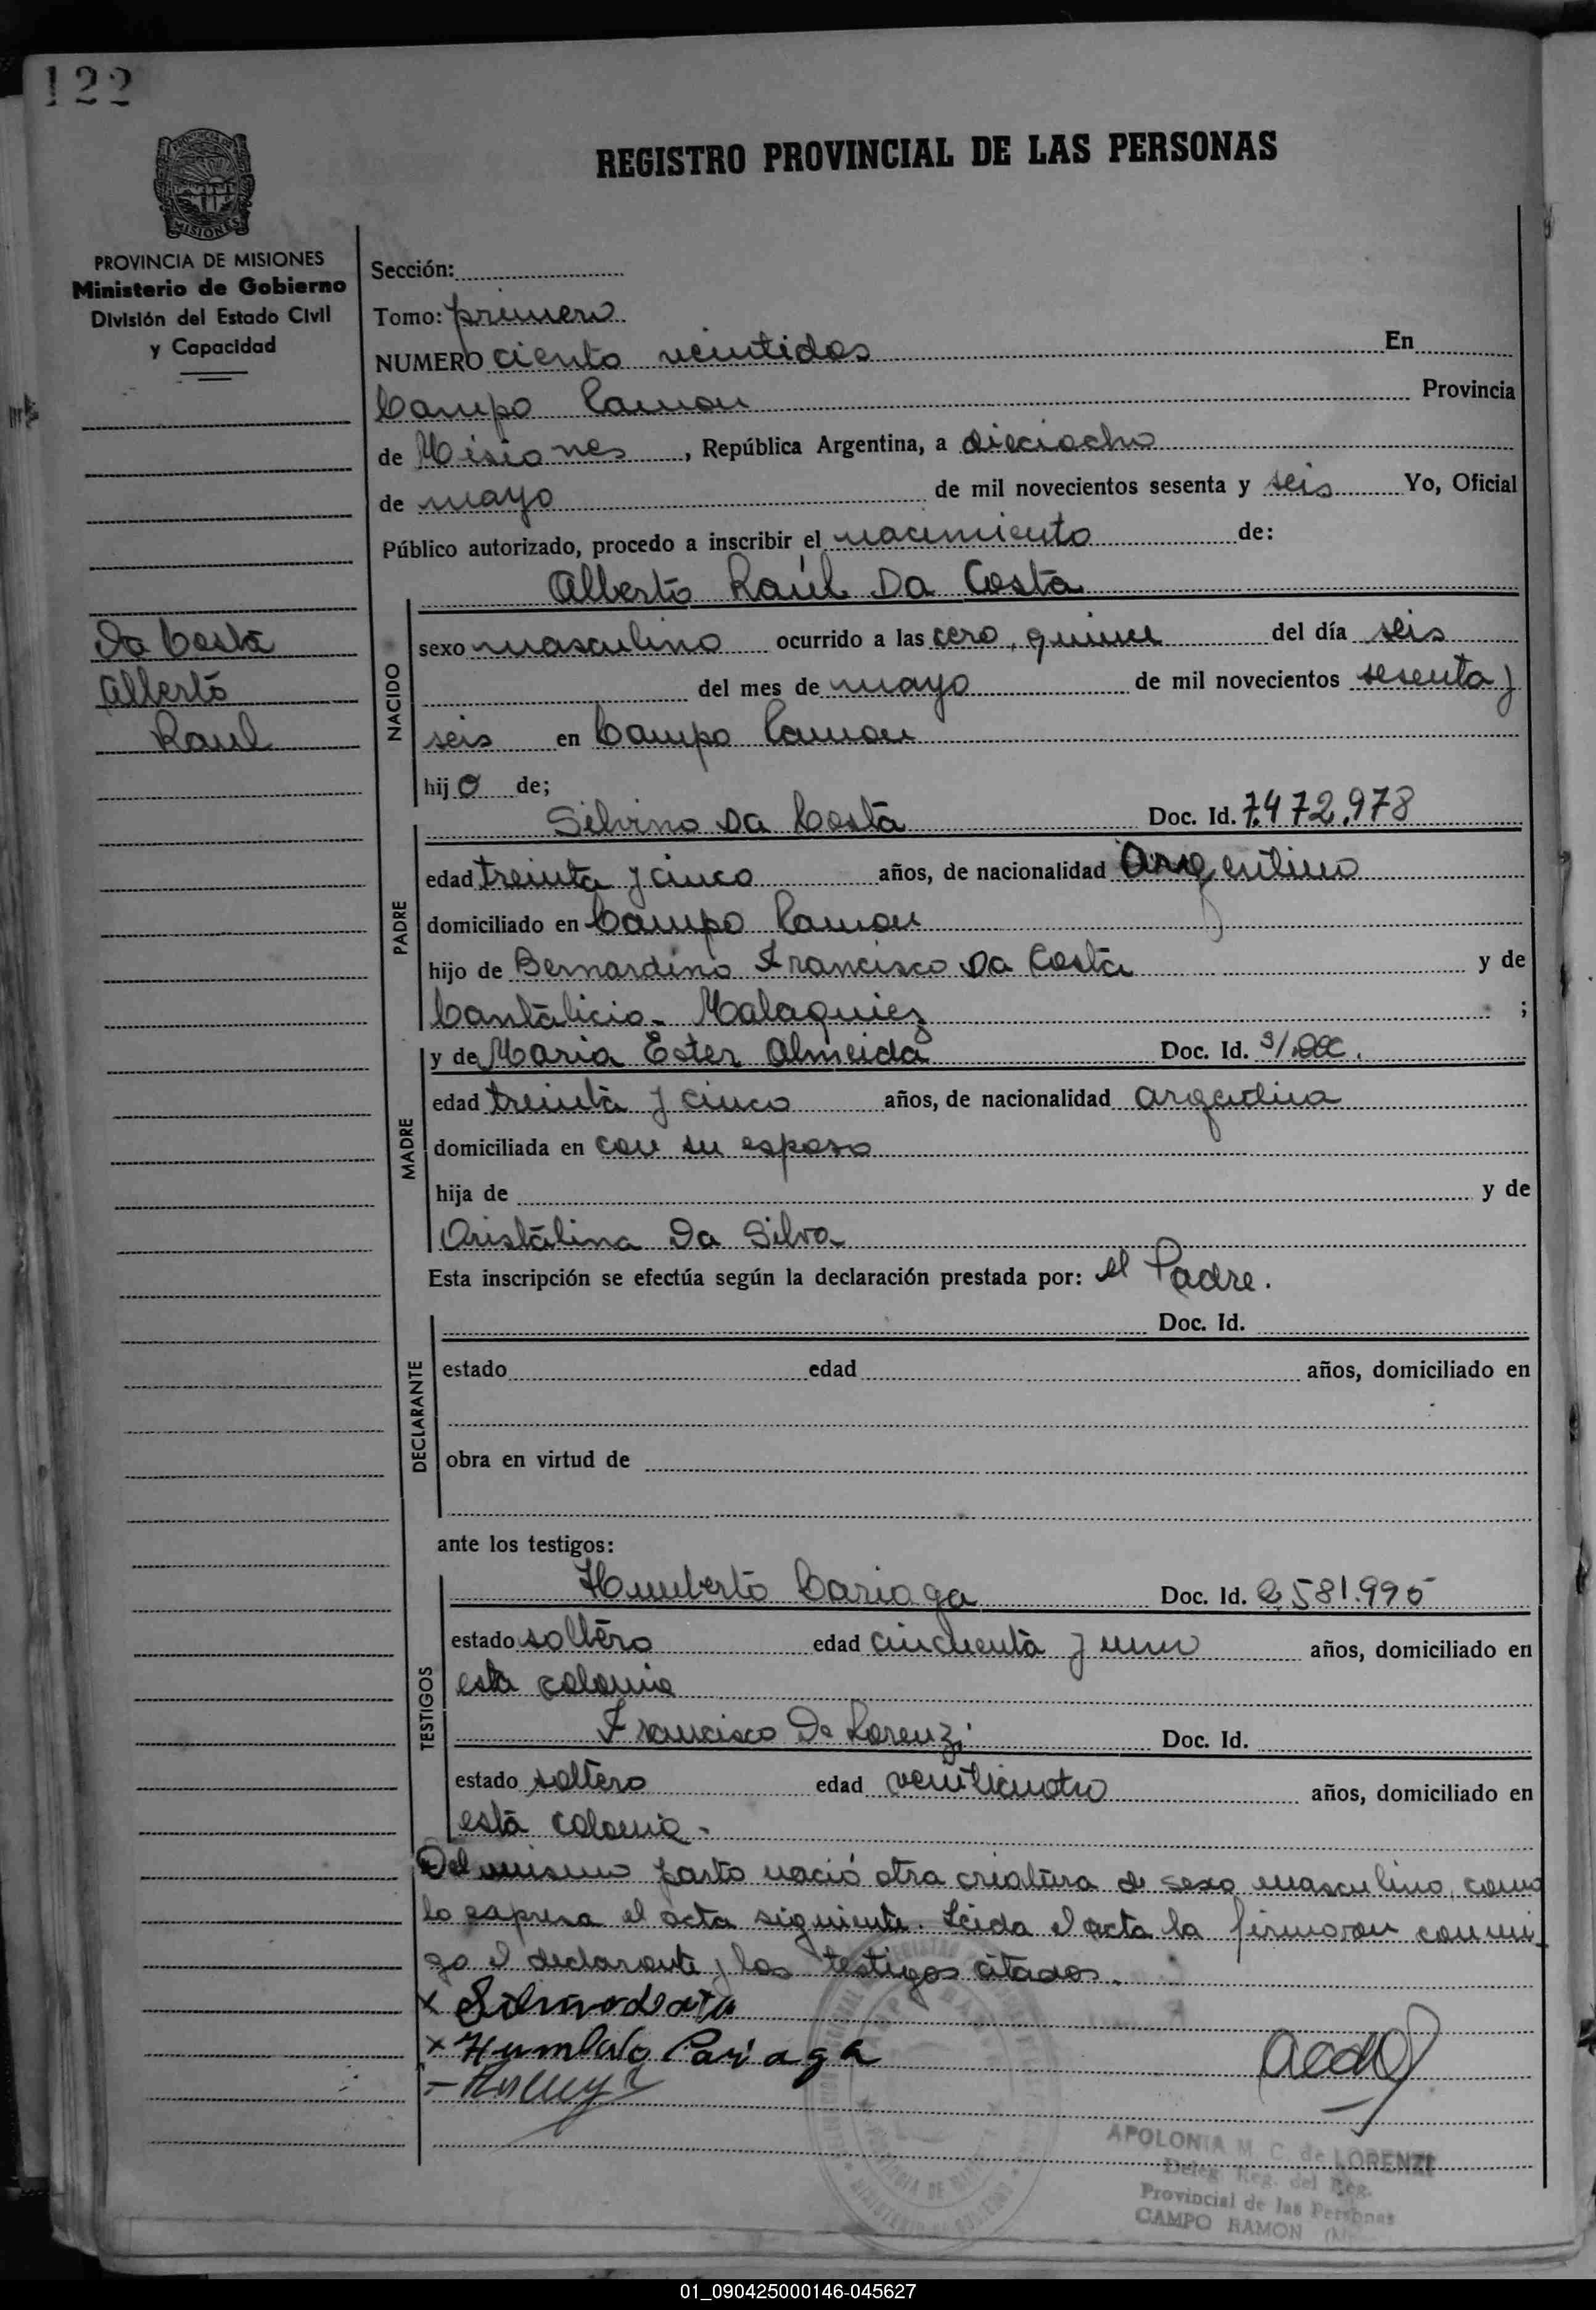 122
REGISTRO PROVINCIAL DE LAS PERSONAS
MISIONES
PROVINCIA DE MISIONES
Ministerio de Gobierno
División del Estado Civil
y Capacidad
Da Costa
Alberto
Raul
Sección:
Tomo: primero
NUMERO ciento veintidos En
Campo Ramon Provincia
de Misiones, República Argentina, a dieciocho
de mayo de mil novecientos sesenta y seis Yo, Oficial
Público autorizado, procedo a inscribir el nacimiento de:
Alberto Raúl Da Costa
NACIDO
sexo masculino ocurrido a las cero, quince del día seis
del mes de mayo de mil novecientos sesenta y
seis en Campo Ramon
hijo de;
PADRE
Silvino Da Costa Doc. Id. 7.472.978
edad treinta y cinco años, de nacionalidad argentino
domiciliado en Campo Ramon
hijo de Bernardino Francisco Da Costa y de
Cantalicia Malaquiez ;
MADRE
y de Maria Ester Almeida Doc. Id. S/Doc.
edad treinta y cinco años, de nacionalidad argentina
domiciliada en con su esposo
hija de y de
Cristalina Da Silva
Esta inscripción se efectúa según la declaración prestada por: el Padre.
DECLARANTE
Doc. Id.
estado edad años, domiciliado en
obra en virtud de
ante los testigos:
TESTIGOS
Humberto Cariaga Doc. Id. 2.581.995
estado soltero edad cincuenta y uno años, domiciliado en
esta colonia
Francisco De Lorenzi Doc. Id.
estado soltero edad veinticuatro años, domiciliado en
esta colonia.
Del mismo parto nació otra criatura de sexo masculino, como
lo expresa el acta siguiente. Leida el acta la firmaron conmi-
go el declarante y los testigos citados.
x
x Humberto Cariaga
APOLONIA M. C. de LORENZI
Deleg. Reg. del Reg.
Provincial de las Personas
CAMPO RAMON
01_090425000146-045627